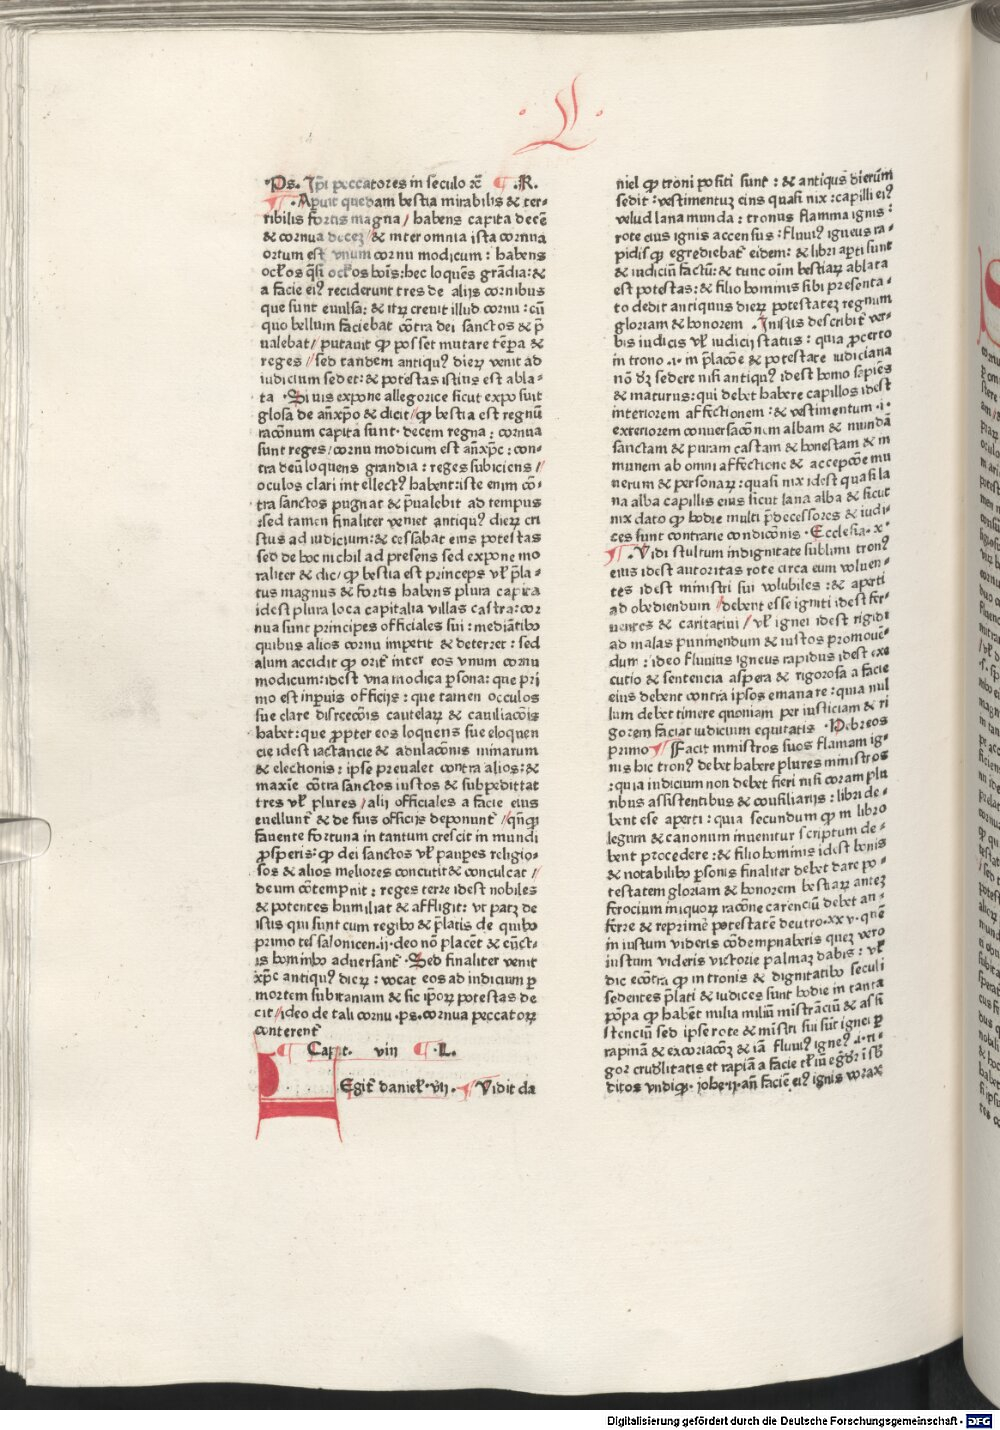 L
Ps. Ip̄i peccatores in seculo rc̄ ¶ .R.
¶ .Aꝑuit quedam bestia mirabilis & ter-
ribilis fortis magna/ habens capita decē
& cornua decez/ & inter omnia ista cornua
ortum est vnum cornu modicum : habens
oc̄los q̄si oc̄los hoīs: hec loquēs grādia: &
a facie eiꝰ reciderunt tres de alijs cornibus
que sunt euulsa: & itꝝ creuit illud cornu : cū
quo bellum faciebat cōtra dei sanctos & p̄
ualebat/ putauit ꝙ posset mutare tēpa &
reges /sed tandem antiquꝰ dieꝝ venit ad
iudicium sedet: & potestas istius est abla-
ta .Si uis expone allegorice sicut exposuit
glosa de an̄xp̄o & dicit/ ꝙ bestia est regnū
racōnum capita sunt. decem regna: cornua
sunt reges: cornu modicum est an̄xp̄c: con-
tra deū loquens grandia : reges subiciens/
oculos clari intellectꝰ habent: iste enim cō-
tra sanctos pugnat & p̄ualebit ad tempus
:sed tamen finaliter veniet antiquꝰ dieꝝ cri
stus ad iudicium: & cessabat eius potestas
sed de hoc nichil ad presens sed expone mo
raliter & dic/ ꝙ bestia est princeps vl̄ p̄la-
tus magnus & fortis habens plura capita
idest plura loca capitalia villas castra: cor
nua sunt principes officiales sui : mediātibo
quibus alios cornu impetit & deterret : sed
alum accidit ꝙ orit̄ inter eos vnum cornu
modicum: idest vna modica ꝑsona: que pri
mo est in paruis officijs : que tamen occulos
sue clare disrcecōis cautelaꝝ & cauilacōis
habet: que ꝓpter eos loquens sue eloquen
cie idest iactancie & adulacōnis minarum
& electionis : ipse preualet contra alios: &
maxīe cōtra sanctos iustos & subpedittat
tres vl̄ plures /alij officiales a facie eius
euellunt̄ & de suis officijs deponunt̄ /qn̄ꝙ
fauente fortuna in tantum crescit in mundi
ꝓsperis: ꝙ dei sanctos vl̄ pauꝑes religio-
sos & alios meliores concutit & conculcat /
deum cōtempnit : reges terre idest nobiles
& potentes humiliat & affligit: vt patꝫ de
istis qui sunt cum regibo & p̄latis de quibo
primo tessalonicen.ij. deo nō placēt & cūct-
is hominibo aduersant̄ .Sed finaliter venit
xp̄c antiquꝰ dieꝝ : vocat eos ad iudicium ꝑ
mortem subitaniam & sic ip̄oꝝ potestas de
cit/ ideo de tali cornu .ps. cornua peccatoꝝ
conterent̄
¶ Capt. viij ¶ .L.
LEgit̄ daniel̄. vij. ¶ Vidit da
niel ꝙ troni positi sunt : & antiquꝰ dierum
sedit : vestimentuꝫ eius quasi nix : capilli eiꝰ
velud lana munda : tronus flamma ignis :
rote eius ignis accensus : fluuiꝰ igneus ra-
pidusꝙ egrediebat̄ eidem: & libri aꝑti sunt
& iudiciū factū: & tunc oīm bestiaꝝ ablata
est potestas: & filio hominis sibi presenta-
to dedit antiquus dieꝝ potestateꝫ regnum
gloriam & honorem .In istis describit̄ ver-
bis iudicis vl̄ iudicij status : quia ꝓcerto
in trono .i. in p̄lacōe & potestate iudiciaria
nō dꝫ sedere nisi antiquꝰ idest homo sapiēs
& maturus: qui debet habere capillos idest
interiorem affectionem : & vestimentum .i.
exteriorem conuersacōnem albam & mundā
sanctam & puram castam & honestam & in
munem ab omni affectione & accepcōe mu
nerum & personaꝝ : quasi nix idest quasi la
na alba capillis eius sicut lana alba & sicut
nix dato ꝙ hodie multi p̄decessores & iudi-
ces sunt contrarie condicōnis .Ecclesia. xͦ
¶ .Vidi stultum in dignitate sublimi tronꝰ
eius idest autoritas rote circa eum voluen-
tes idest ministri sui volubiles : & aperti
ad obediendum /debent esse igniti idest fer-
uentes & caritatiui / vl̄ ignei idest rigidi
ad malas puniendum & iustos promouē-
dum : ideo fluuius igneus rapidus idest exe
cutio & sentencia aspera & rigorosa a facie
eius debent contra ipsos emanare : quia nul
lum debet timere quoniam per iusticiam & ri
gorem faciat iudicium equitatis .Hebreos
primo ¶ Facit ministros suos flamam ig-
nis hic tronꝰ debet habere plures ministros
: quia iudicium non debet fieri nisi coram plu
ribus assistentibus & consiliarijs : libri de-
bent ese aperti : quia secundum ꝙ in libro
legum & canonum inuenitur scriptum de-
bent procedere : & filio hominis idest bonis
& notabilibo ꝑsonis finaliter debet dare po-
testatem gloriam & honorem bestiaꝝ anteꝫ
ferocium iniquoꝝ racōne carenciū debet au-
ferre & reprimē potestatē deutro. xxv. quē
in iustum videris cōdempnaberis queꝫ vero
iustum videris victorie palmaꝫ dabis : vl̄
dic ecōtra ꝙ in tronis & dignitatibo seculi
sedentes p̄lati & iudices sunt hodie in tanta
pōpa ꝙ habēt milia miliū ministrāciū & assi
stenciū sed ipse rote & mīstri sui sūt ignei ꝑ
rapinā & excoriacōꝫ & iā fluuiꝰ igneꝰ .i. ri-
gor crudlitatis et rapiā a facie
ditos vndiqꝫ. iohe. ij. an̄ faciē eiꝰ ignis vorax
Digitalisierung gefördert durch die Deutsche Forschungsgemeinschaft - DFG